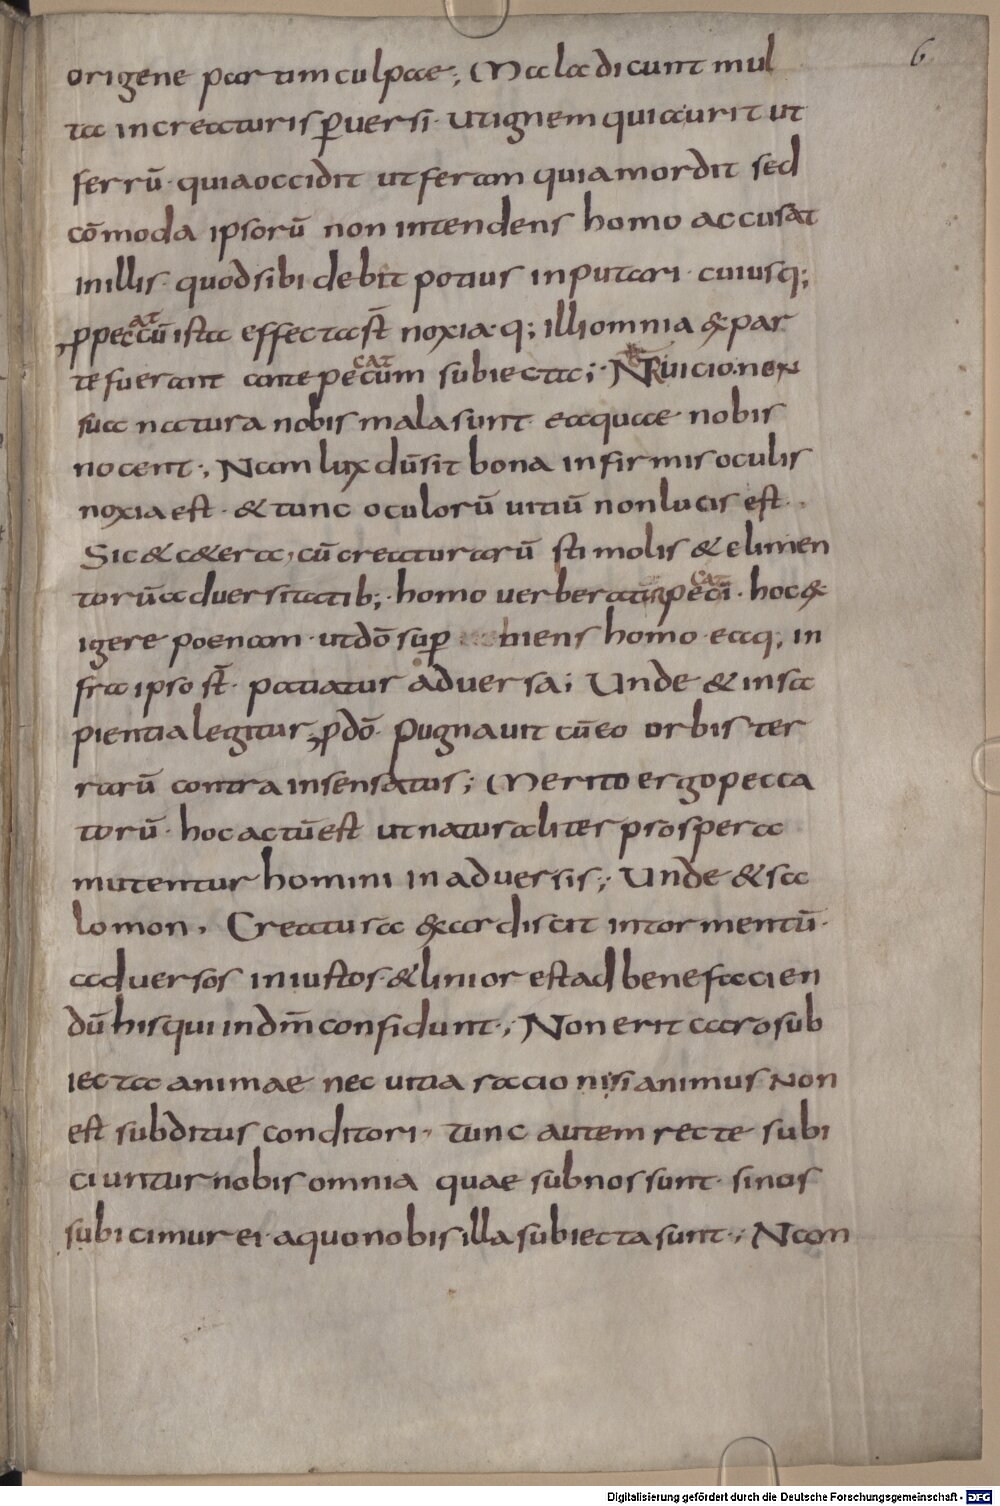 6
origene partim culpae; Mala dicunt mul
ta in creaturis puersi· ut ignem quia urit ut
ferrū· quia occidit ut feram quia mordit sed
cōmoda ipsorū non intendens homo accusat
in illis· quod sibi debit potius inputari· cuiusq;
ppeccatū ista effecta st̄ noxia·q; illi omnia & par
te fuerant ante peccatum subiecta; Nr̄ uicio· non
sua natura nobis mala sunt· ea quae nobis
nocent·, Nam lux dū sit bona infirmis oculis
noxia est· & tunc oculorū uitiū non lucis est·
Sic & cetera, cū creaturarū stimolis & elimen
torū aduersitatib;· homo uerberatur peccati· hoc ex
igere poenam· ut dō sup biens homo· eaq; in
fra ipso st̄· patiatur aduersa; Unde & in sa
pientia legitur, p dō· Pugnauit cū eo orbis ter
rarū contra insensatus; Merito ergo pecca
torū· hoc actū est ut naturaliter prospera
mutentur homini in aduersis; Unde & sa
lomon, Creatura exardiscit in tormentū·
aduersos iniustos· & linior est ad benefacien
dū his qui in dm̄ confidunt·; Non erit caro sub
iecta animae nec uitia racio nisi animus Non
est subditus conditori, tunc autem recte subi
ciuntur nobis omnia quae sub nos sunt· si nos
subicimur ei· a quo nobis illa subiecta sunt·; Nam
Digitalisierung gefördert durch die Deutsche Forschungsgemeinschaft - DFG